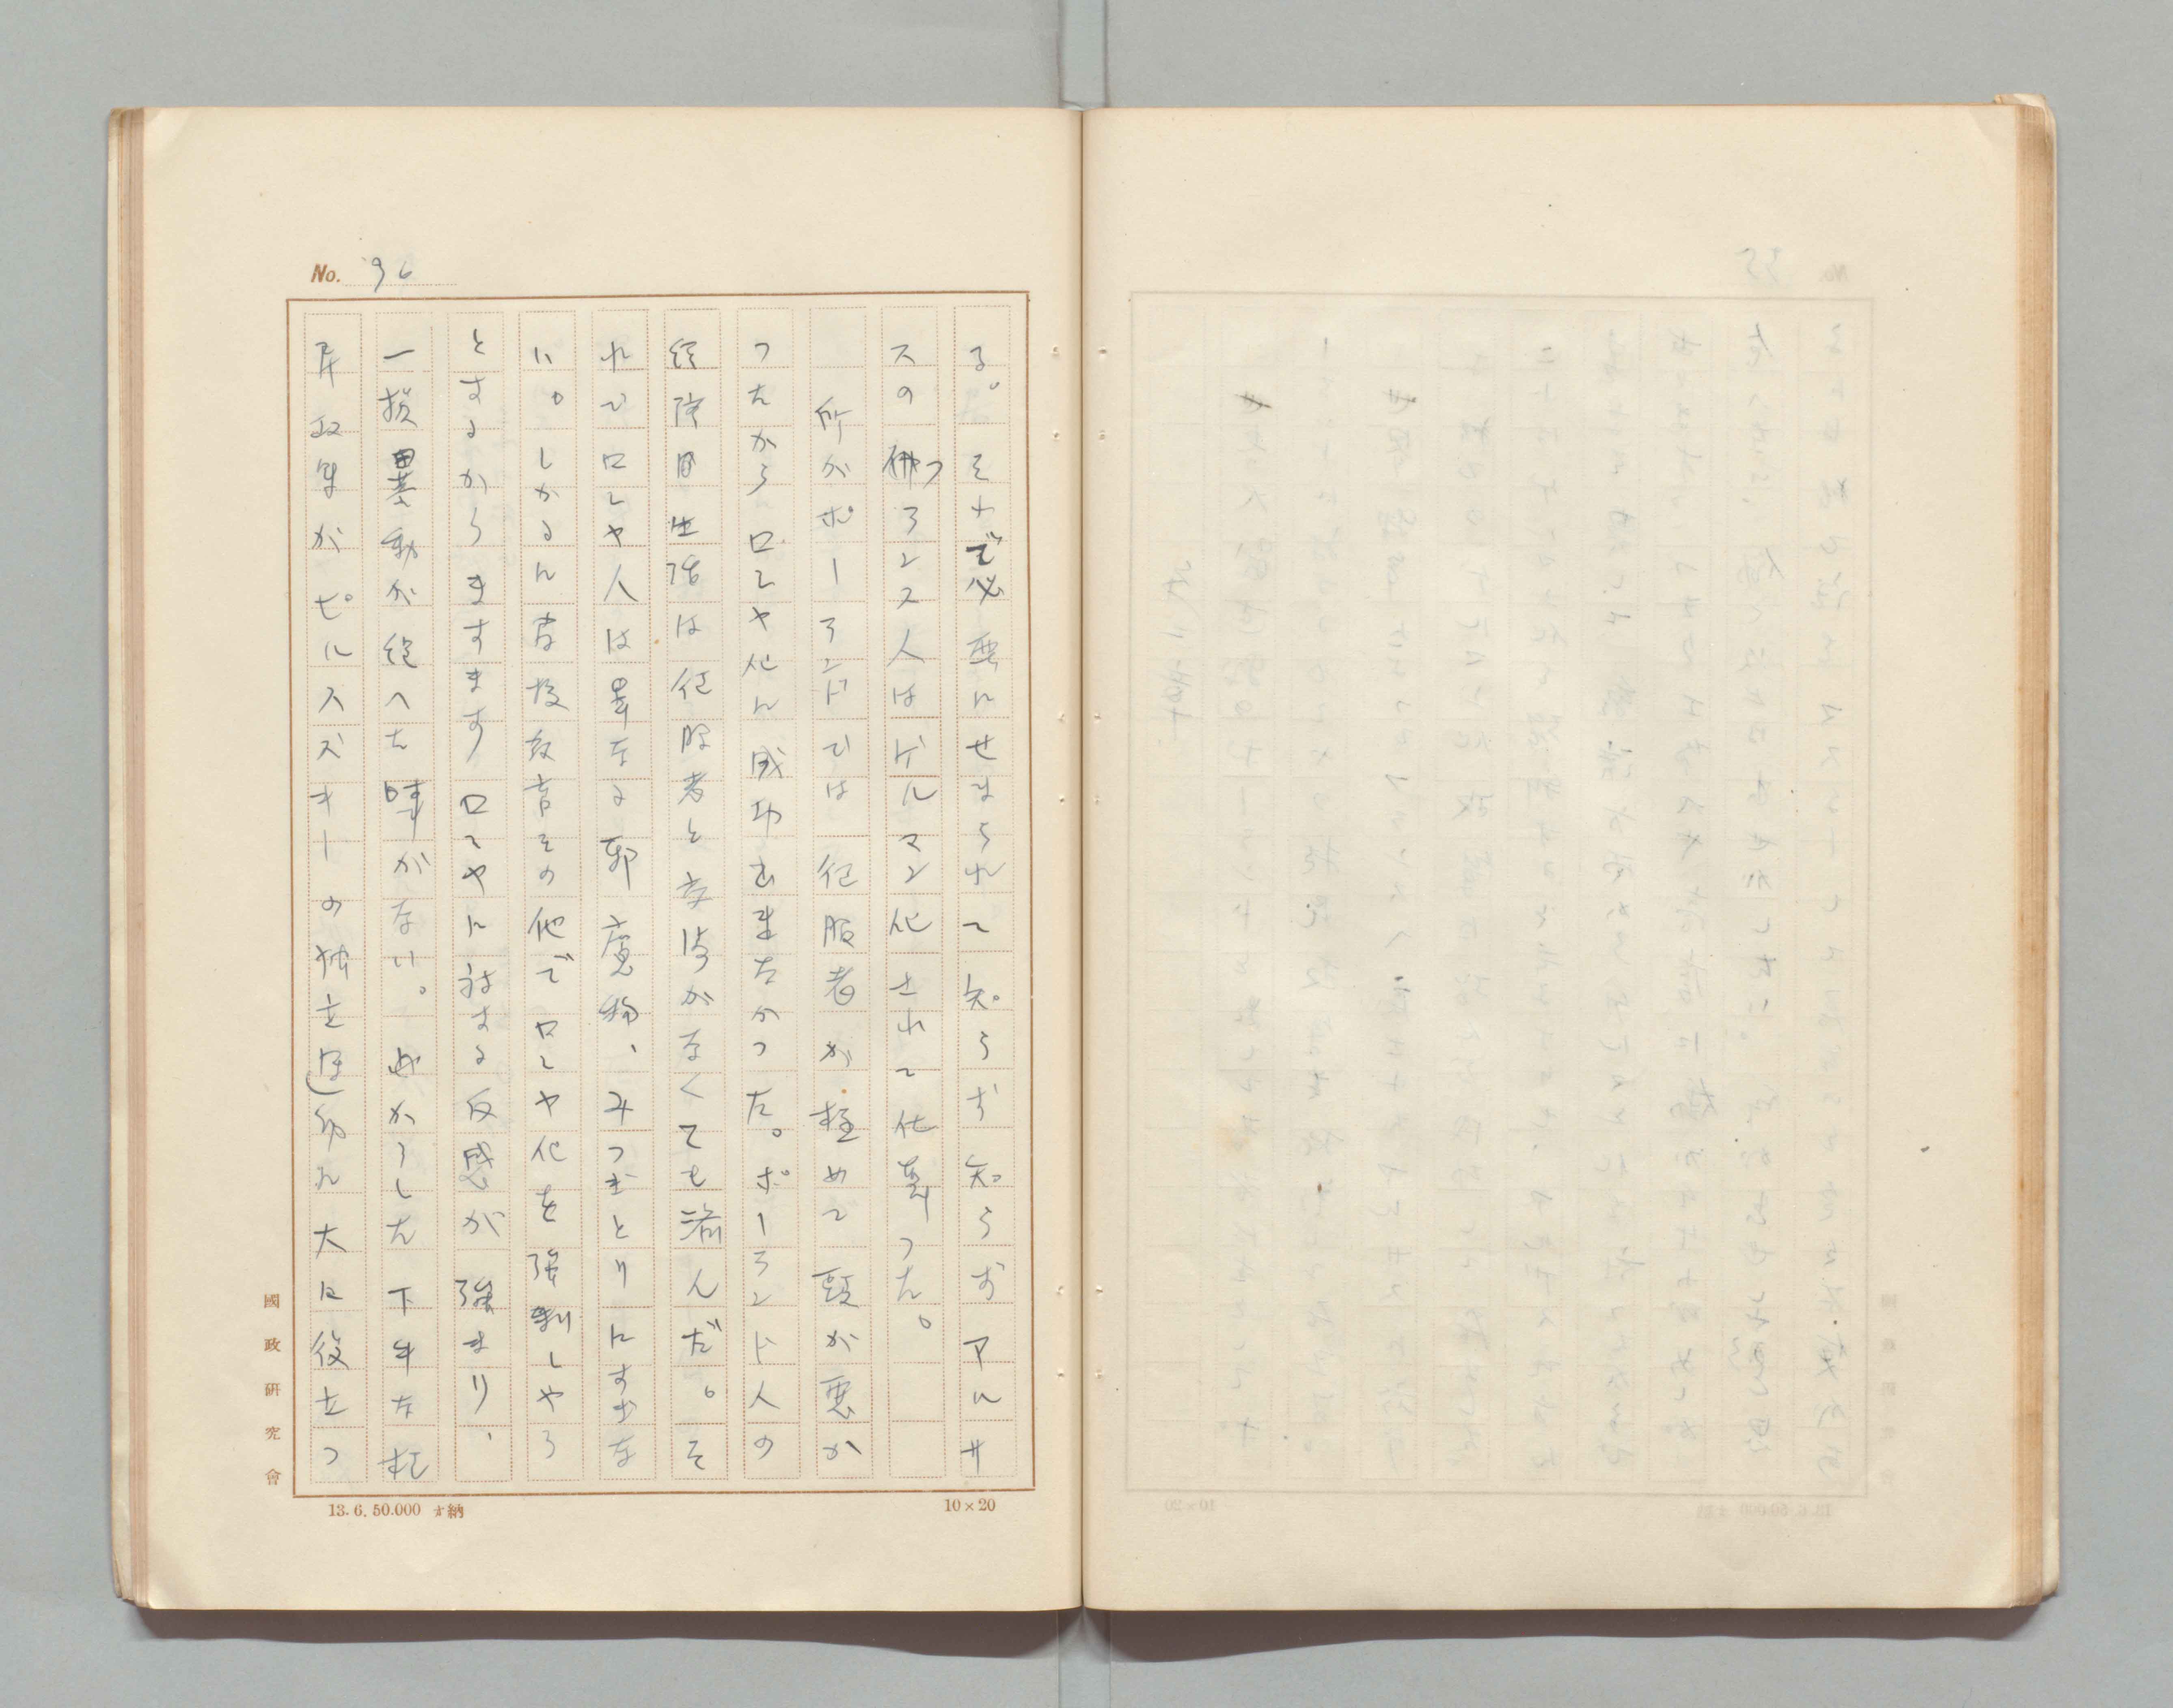 No. 36
る。それで必要にせまられて知らず知らずアルサ
スの佛つランス人はゲルマン化されて化華つた。
所がポーランドでは征服者が極めて頭が悪か
つたからロシヤ化に成功出来なかつた。ポーランド人の
経済的生活は征服者と交渉がなくても済んだ。そ
れでロシヤ人は単なる邪魔物、みつどとりにすぎな
い。しかるに高壓教育その他でロシヤ化を強制しやう
とするからますますロシヤに対する反感が強まり、
一揆暴動が絶へた時がない。めからした下キな
弄政策がピルスズキーの独立運動に大に役立つ
國政研究會
13.6.50.000 才納
10×20